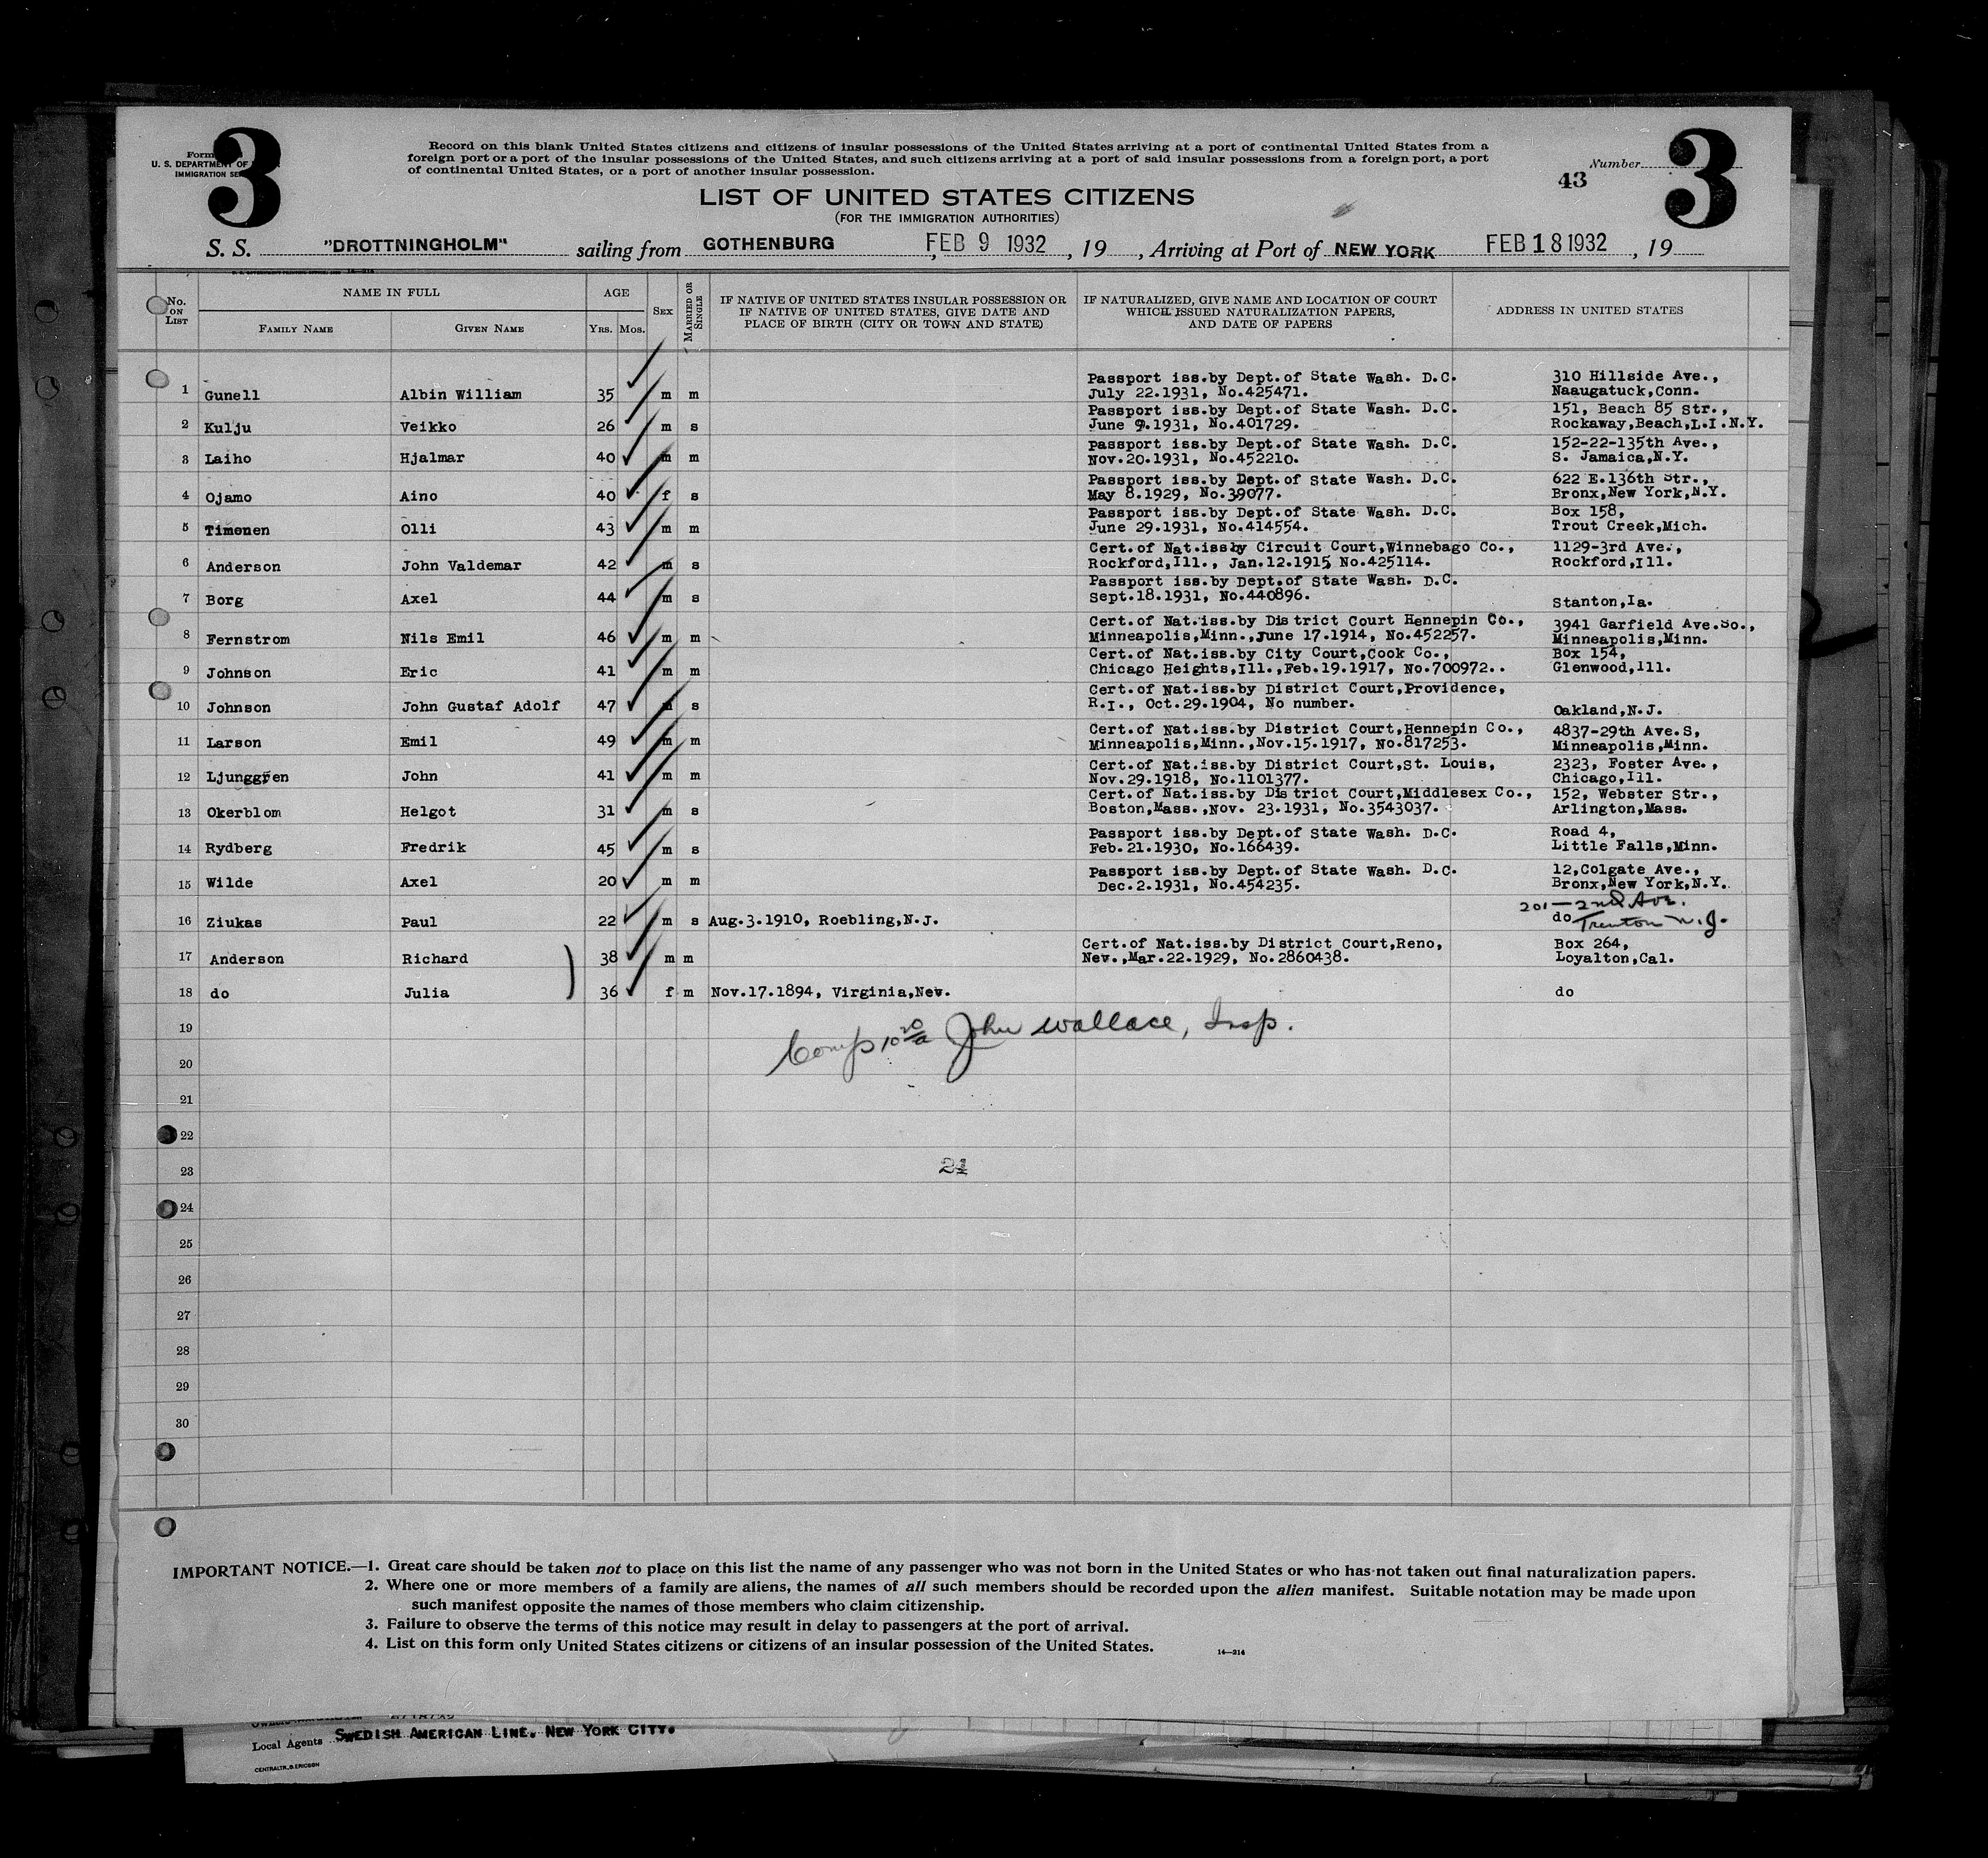 3
Form
U. S. DEPARTMENT OF
IMMIGRATION SE
Record on this blank United States citizens and citizens of insular possessions of the United States arriving at a port of continental United States from a
foreign port or a port of the insular possessions of the United States, and such citizens arriving at a port of said insular possessions from a foreign port, a port
of continental United States, or a port of another insular possession.
Number
43
3
LIST OF UNITED STATES CITIZENS
(FOR THE IMMIGRATION AUTHORITIES)
S. S. "DROTTNINGHOLM" sailing from GOTHENBURG, FEB 9 1932, 19, Arriving at Port of NEW YORK FEB 18 1932, 19
No. ON LIST
NAME IN FULL
FAMILY NAME
GIVEN NAME
AGE
YRS. MOS.
SEX
MARRIED OR SINGLE
IF NATIVE OF UNITED STATES INSULAR POSSESSION OR
IF NATIVE OF UNITED STATES, GIVE DATE AND
PLACE OF BIRTH (CITY OR TOWN AND STATE)
IF NATURALIZED, GIVE NAME AND LOCATION OF COURT
WHICH ISSUED NATURALIZATION PAPERS,
AND DATE OF PAPERS
ADDRESS IN UNITED STATES
Passport iss.by Dept.of State Wash. D.C. 310 Hillside Ave.,
1 Gunell Albin William 35 m m July 22.1931, No.425471. Naaugatuck,Conn.
Passport iss.by Dept.of State Wash. D.C. 151, Beach 85 Str.,
2 Kulju Veikko 26 m s June 9.1931, No.401729. Rockaway,Beach,L.I.N.Y.
Passport iss.by Dept.of State Wash. D.C. 152-22-135th Ave.,
3 Laiho Hjalmar 40 m m Nov.20.1931, No.452210. S. Jamaica,N.Y.
Passport iss.by Dept.of State Wash. D.C. 622 E.136th Str.,
4 Ojamo Aino 40 f s May 8.1929, No.39077. Bronx,New York,N.Y.
Passport iss.by Dept.of State Wash. D.C. Box 158,
5 Timonen Olli 43 m m June 29.1931, No.414554. Trout Creek,Mich.
Cert.of Nat.issby Circuit Court,Winnebago Co., 1129-3rd Ave.,
6 Anderson John Valdemar 42 m s Rockford,Ill., Jan.12.1915, No.425114. Rockford,Ill.
Passport iss.by Dept.of State Wash. D.C.
7 Borg Axel 44 m s Sept.18.1931, No.440896. Stanton,Ia.
Cert.of Nat.iss.by District Court Hennepin Co., 3941 Garfield Ave.So.,
8 Fernstrom Nils Emil 46 m m Minneapolis,Minn.,June 17.1914, No.452257. Minneapolis,Minn.
Cert.of Nat.iss.by City Court,Cook Co., Box 154,
9 Johnson Eric 41 m m Chicago Heights,Ill.,Feb.19.1917, No.700972.. Glenwood,Ill.
Cert.of Nat.iss.by District Court,Providence,
10 Johnson John Gustaf Adolf 47 m s R.I., Oct.29.1904, No number. Oakland,N.J.
Cert.of Nat.iss.by District Court,Hennepin Co., 4837-29th Ave.S,
11 Larson Emil 49 m m Minneapolis,Minn.,Nov.15.1917, No.817253. Minneapolis,Minn.
Cert.of Nat.iss.by District Court,St. Louis, 2323, Foster Ave.,
12 Ljunggren John 41 m m Nov.29.1918, No.1101377. Chicago,Ill.
Cert.of Nat.iss.by District Court,Middlesex Co., 152, Webster Str.,
13 Okerblom Helgot 31 m s Boston,Mass.,Nov. 23.1931, No.3543037. Arlington,Mass.
Passport iss.by Dept.of State Wash. D.C. Road 4,
14 Rydberg Fredrik 45 m s Feb.21.1930, No.166439. Little Falls,Minn.
Passport iss.by Dept.of State Wash. D.C. 12,Colgate Ave.,
15 Wilde Axel 20 m m Dec.2.1931, No.454235. Bronx,New York,N.Y.
201-2nd Ave.
16 Ziukas Paul 22 m s Aug.3.1910, Roebling,N.J. do Trenton N.J.
Cert.of Nat.iss.by District Court,Reno, Box 264,
17 Anderson Richard 38 m m Nev.,Mar.22.1929, No.2860438. Loyalton,Cal.
18 do Julia 36 f m Nov.17.1894, Virginia,Nev. do
19
Comp 10 20/a John Wallace, Insp.
20
21
22
23
24
25
26
27
28
29
30
IMPORTANT NOTICE.—1. Great care should be taken not to place on this list the name of any passenger who was not born in the United States or who has not taken out final naturalization papers.
2. Where one or more members of a family are aliens, the names of all such members should be recorded upon the alien manifest. Suitable notation may be made upon
such manifest opposite the names of those members who claim citizenship.
3. Failure to observe the terms of this notice may result in delay to passengers at the port of arrival.
4. List on this form only United States citizens or citizens of an insular possession of the United States.
14—214
Local Agents SWEDISH AMERICAN LINE. NEW YORK CITY.
CENTRALTR. G. ERICSON